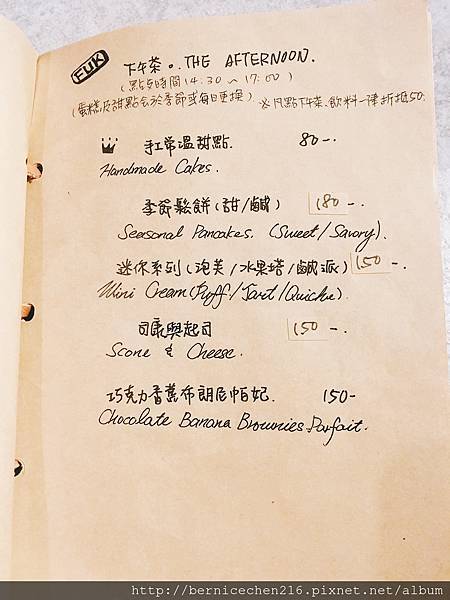 FUK
下午茶。. THE AFTERNOON.
(點餐時間 14:30 ~ 17:00)
(蛋糕及甜點會於季節或每日更換) ※凡點下午茶.飲料一律折抵50.
手工常溫甜點. 80-.
Handmade Cakes.
季節鬆餅(甜/鹹) 180-.
Seasonal Pancakes. (Sweet/Savory).
迷你系列(泡芙/水果塔/鹹派) 150-.
Mini Cream(Puff/Tart/Quiche).
司康與起司 150-.
Scone & Cheese.
巧克力香蕉布朗尼帕妃. 150-
Chocolate Banana Brownies Parfait.
http://bernicechen216.pixnet.net/album